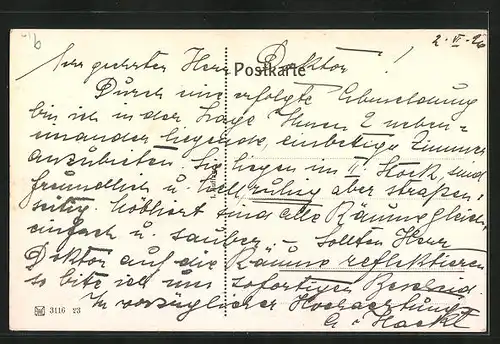 2. VI. 26
Sehr geehrter Herr Doktor!
Postkarte
Durch eine erfolgte Abmeldung
bin ich in der Lage Ihnen 2 neben=
einander liegende, einbettige Zimmer
anzubieten. Sie liegen im II. Stock, sind
freundlich u. hell, ruhig aber straßen=
seitig. Möbliert sind alle Räume gleich,
einfach u. sauber – Sollten Herr
Doktor auf die Räume reflektieren
so bitte ich um sofortigen Bescheid.
In vorzüglicher Hochachtung
3116 23